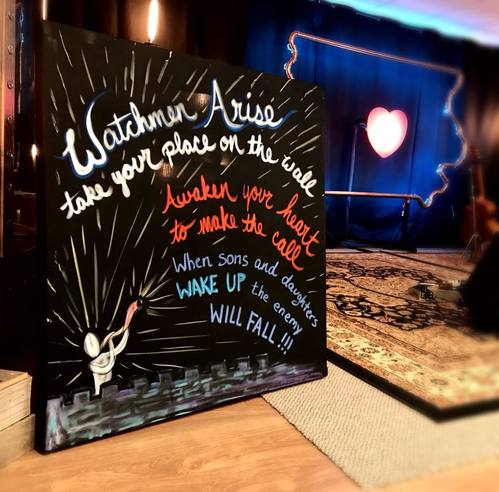 Watchmen Arise
take your place on the wall
Awaken your heart
to make the call
When sons and daughters
WAKE UP the enemy
WILL FALL!!!